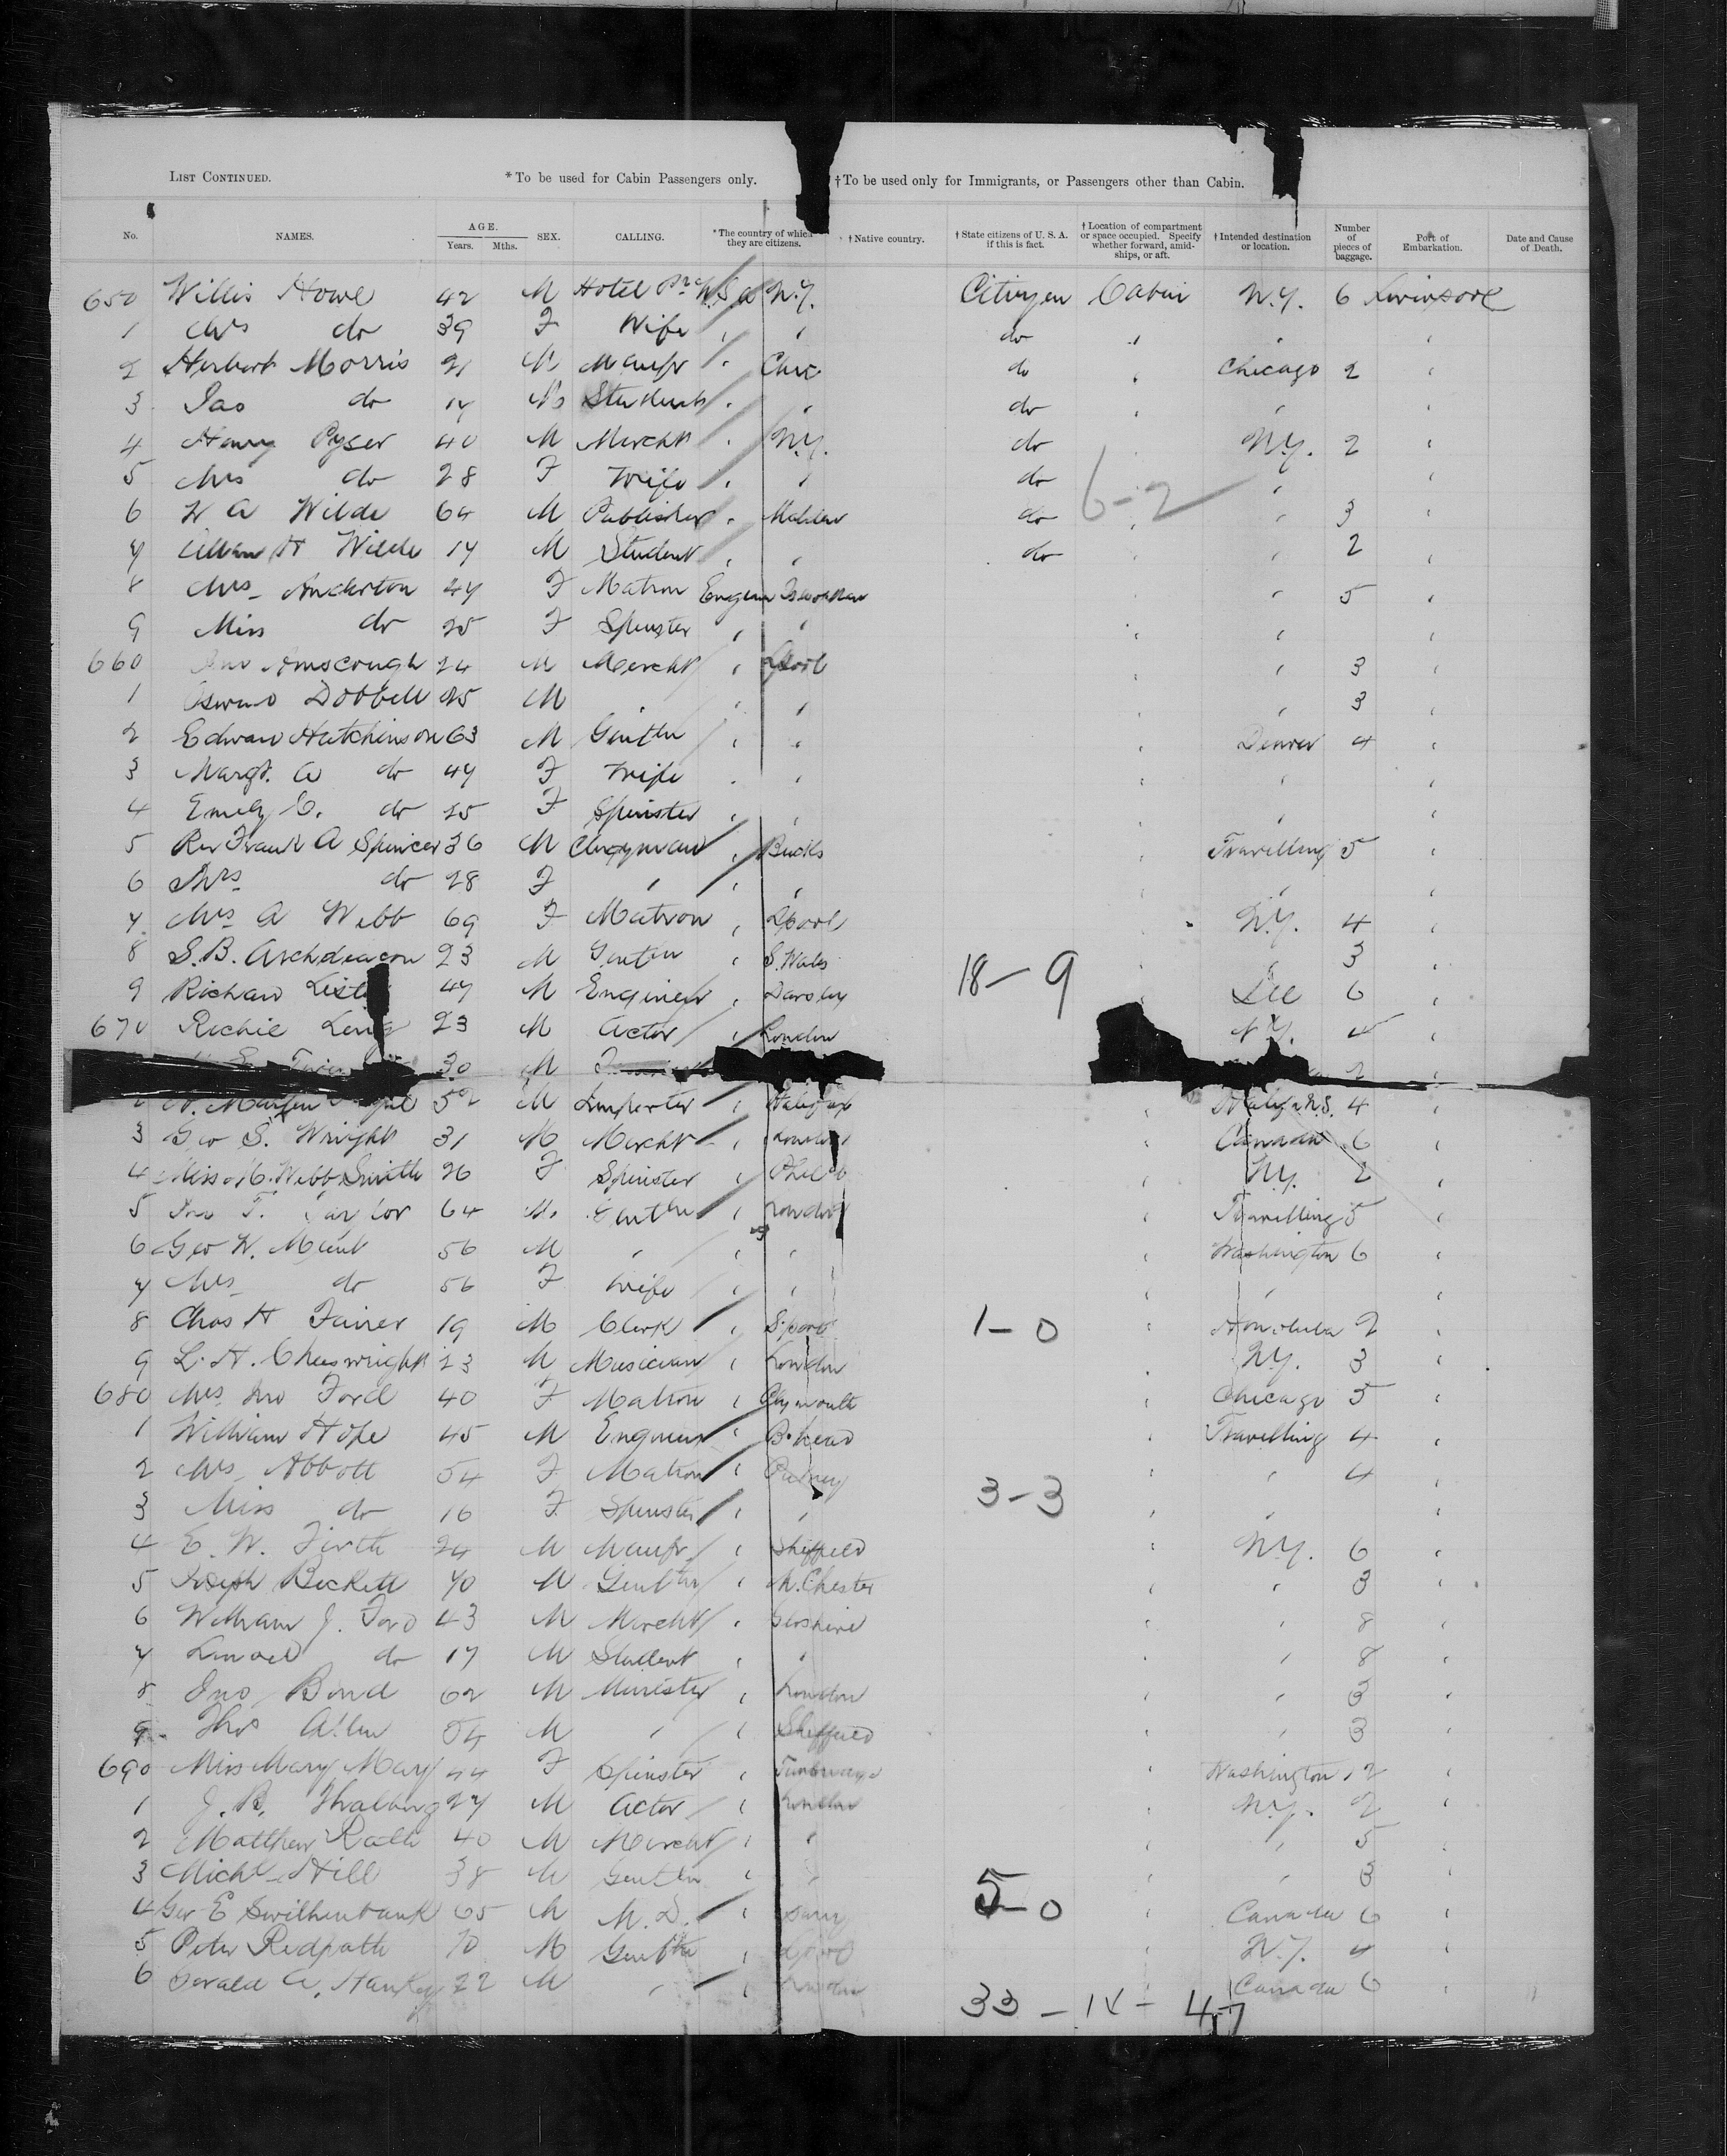 LIST CONTINUED. * To be used for Cabin Passengers only. † To be used only for Immigrants, or Passengers other than Cabin.
No. NAMES. AGE. Years. Mths. SEX. CALLING. * The country of which they are citizens. † Native country. † State citizens of U. S. A. if this is fact. † Location of compartment or space occupied. Specify whether forward, amidships, or aft. † Intended destination or location. Number of pieces of baggage. Port of Embarkation. Date and Cause of Death.
650 Willis Howe 42 M Hotel Pro U.S.A N.Y. Citizen Cabin N.Y. 6 Liverpool
1 Mrs do 39 F Wife " " do " " "
2 Herbert Morris 21 M Manfr " Chic do " Chicago 2 "
3 Jas do 17 M Student " " do " " "
4 Henry Pyser 40 M Mercht " N.Y. do " N.Y. 2 "
5 Mrs do 28 F Wife " " do " " "
6-2
6 W A Wilde 64 M Publisher " Malden do " " 3 "
7 Allan H Wilde 17 M Student " " do " " 2 "
8 Mrs Anderton 47 F Matron " " 5 "
9 Miss do 25 F Spinster " " " " "
660 Jno Ainscough 24 M Mercht " Lpool " " 3 "
1 Dobbell 25 M " " " " " 3 "
2 Edward Hutchinson 63 M Gentln " " " Denver 4 "
3 Margt. A do 47 F Wife " " " " "
4 Emily C. do 25 F Spinster " " " " "
5 Rev Frank A Spencer 36 M Clergyman " Bucks " Travelling 5 "
6 Mrs do 28 F " " " " " "
7 Mrs A Webb 69 F Matron " Lpool " N.Y. 4 "
8 S.B. Archdeacon 23 M Gentln " S. Wales " " 3 "
18-9
9 Richard Lister 47 M Engineer " " 6 "
670 Richie Ling 23 M Actor " London N.Y. "
30 M 2 "
52 M Importer " Halifax " Halifax N.S. 4 "
3 Geo S. Wright 31 M Mercht " London " Canada 6 "
4 Miss M. Webb Smith 26 F Spinster " " N.Y. 2 "
5 Jno T. Taylor 64 M Gentln " London " Travelling 5 "
6 Geo W. 56 M " " " " Washington 6 "
7 Mrs do 56 F Wife " " " " "
8 Chas H 19 M Clerk " 1-0 " Honolulu 2 "
9 L. H. Cheeswright 23 M Musician " London " N.Y. 3 "
680 Mrs Jno Ford 40 F Matron " Plymouth " Chicago 5 "
1 William Hope 45 M Engineer " B.head " Travelling 4 "
2 Mrs Abbott 54 F Matron " Putney " " 4 "
3-3
3 Miss do 16 F Spinster " " " "
4 E. W. Firth 24 M Manfr " Sheffield " N.Y. 6 "
5 Joseph Beckett 70 M Gentln " M.Chester " " 3 "
6 William J. Ford 43 M Mercht " Gloshire " " 8 "
7 Lionel do 17 M Student " " " " 8 "
8 Jno Bond 62 M Minister " London " " 3 "
9 Thos Allen 54 M " " Sheffield " " 3 "
690 Miss Mary May 44 F Spinster " " Washington 2 "
1 J. B. Thalberg 27 M Actor " London " N.Y. 2 "
2 Matthew 40 M Mercht " " " " 5 "
3 Michl Hill 38 M Gentln " " " 3 "
5-0
4 Geo E Swithenbank 65 M M.D. " " Canada 6 "
5 Peter Redpath 70 M Gentln " Lpool " N.Y. 4 "
6 Gerald A. Hankey 22 M " " London " Canada 6 "
33 - 14 - 47